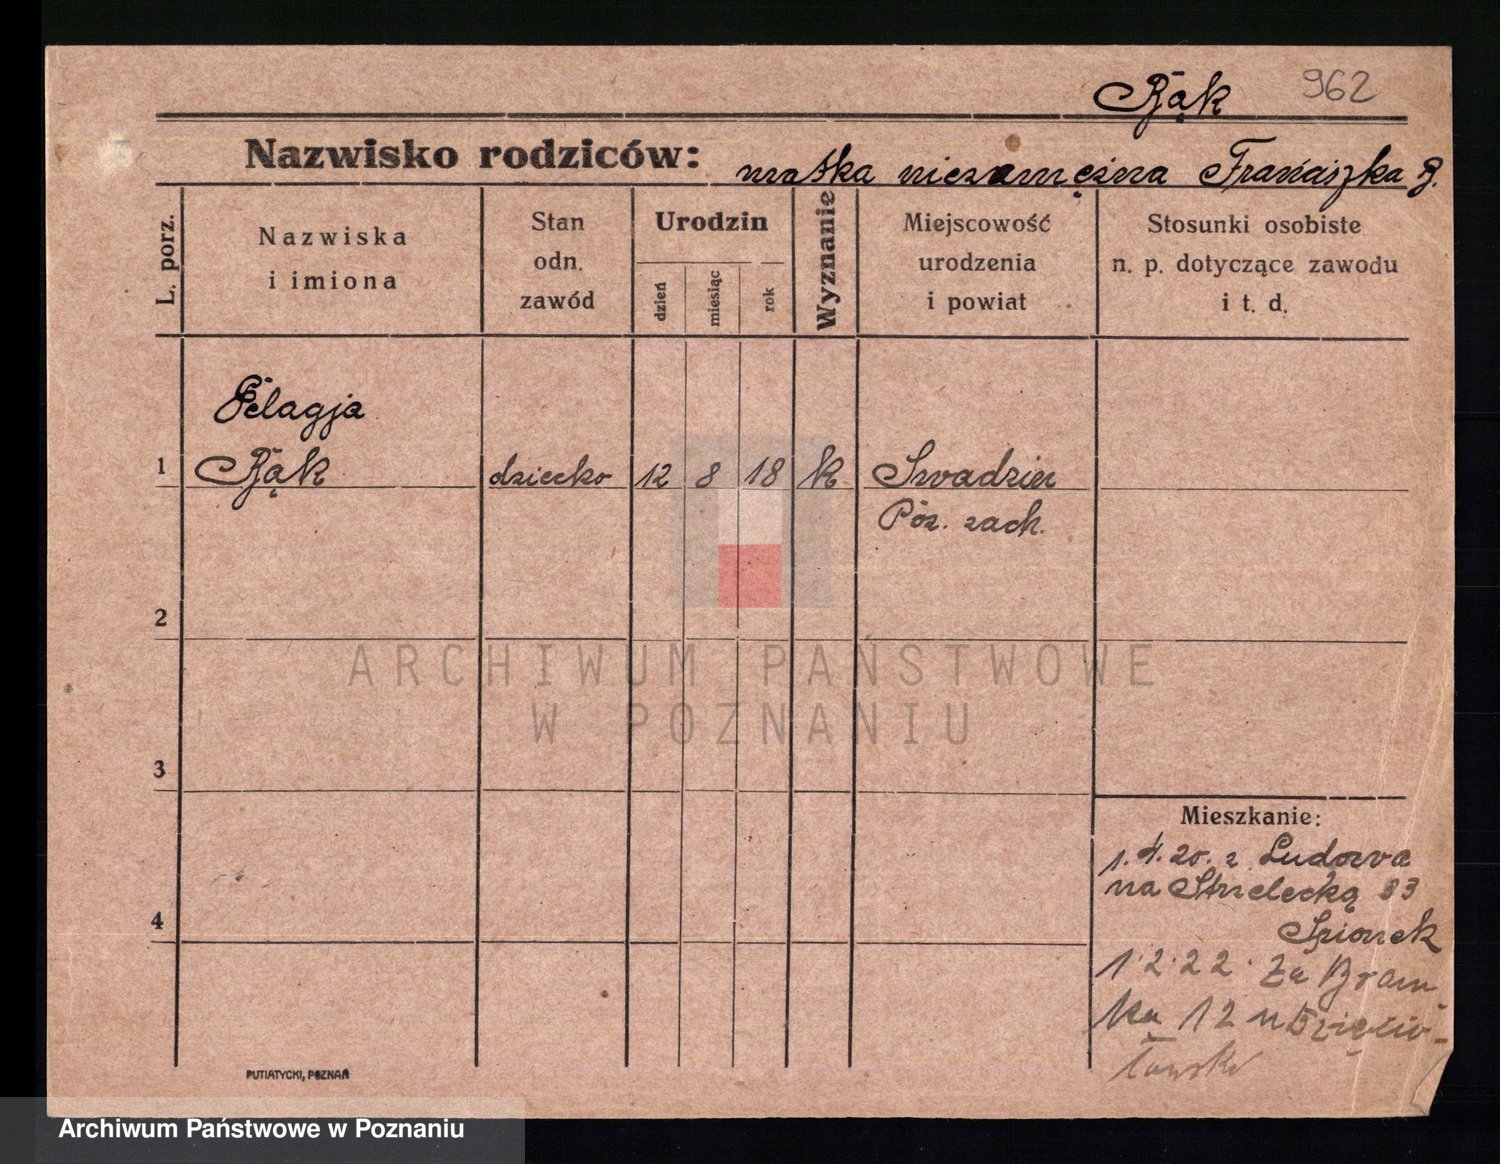 Bąk 962
Nazwisko rodziców: matka niezamężna Franciszka B.
L. porz.
Nazwiska
i imiona
Stan
odn.
zawód
Urodzin
dzień
miesiąc
rok
Wyznanie
Miejscowość
urodzenia
i powiat
Stosunki osobiste
n. p. dotyczące zawodu
i t. d.
Pelagja
1 Bąk dziecko 12 8 18 k Swadzim
Poz. zach.
2
3
4
ARCHIWUM PAŃSTWOWE
W POZNANIU
Mieszkanie:
1.4.20. z Ludowa
na Strzelecką 33
1.2.22. Za Bram
ką 12
PUTIATYCKI, POZNAŃ
Archiwum Państwowe w Poznaniu